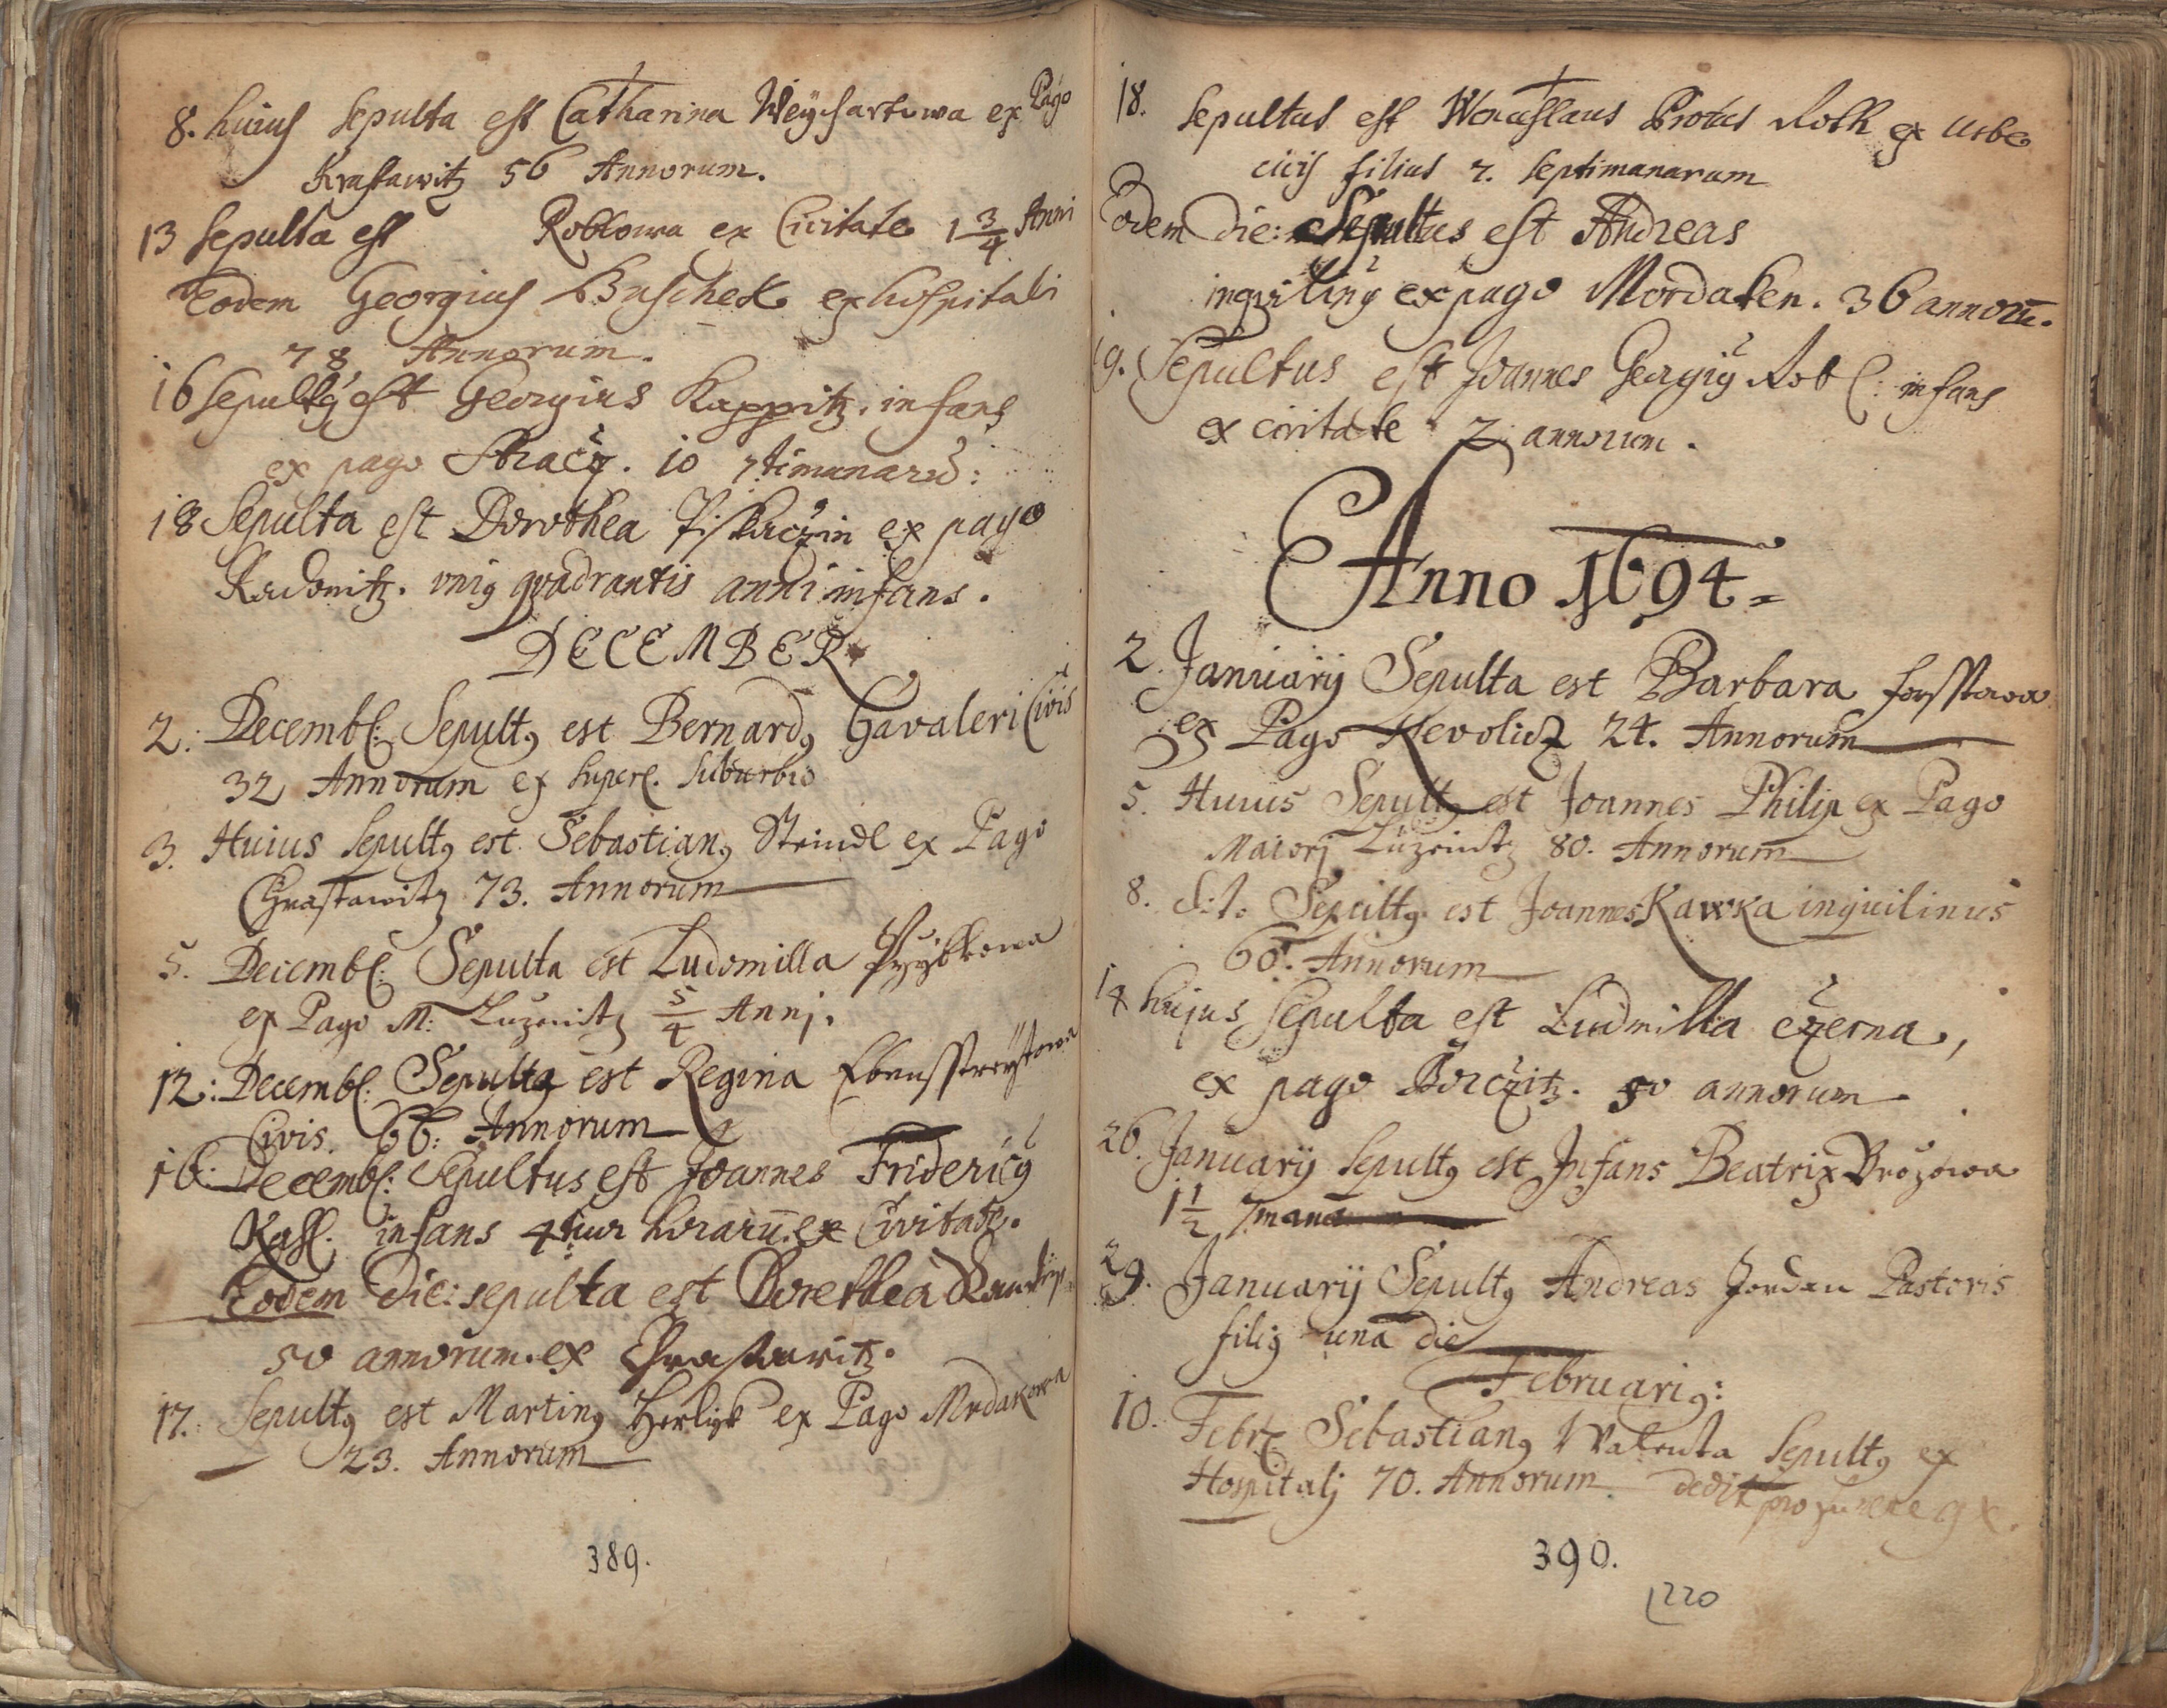 8. huius sepulta est Catharina Weycsartowa ex Pago
Krastawitz 56 Annorum.
13 sepulta est Roblowa ex Civitate 1 3/4 Anni
Eodem Georgius Buschek ex hospitali
78 Annorum.
16 sepultq est Georgius Kappitz. infans
ex pago Straož. 10 7timanarū:
18 Sepulta est Dorothea Piskaczin ex pago
Radonitz. uniq quadrantis anni infans.
DECEMBER
2. Decembr: Sepultq est Bernardq Havaleri Civis
32 Annorum ex super. suburbio
3. Huius sepultq est Sebastianq Steindl ex Pago
Chrastawitz 73. Annorum
5. Decembr: Sepulta est Ludomilla
ex Pago M: Luzenitz 5/4 Annj.
12: Decembr: Sepultq est Regina
Civis. 66: Annorum
16. Decembr: Sepultus est Joannes Fridericq
infans 4tuor horarū. ex Civitate.
Eodem Die: sepulta est Dorethea
50 annorum. ex Chrastawitz.
17. Sepultq est Martinq Herligk ex Pago Mrdakowa
23. Annorum
389.
18. sepultus est Wenceslaus Protus Roth ex urbe
civis filius 7. septimanarum
Eodem Die: Sepultus est Andreas
inquilinq ex pago Mordaken. 36 annorū.
19. Sepultus est Joannes Georgiq Rot: infans
ex civitate 2. annorum.
Anno 1694
2. Januarij Sepulta est Barbara forsstowa
ex Pago Nevolicz 24. Annorum
5. Huius Sepultq est Joannes Philip ex Pago
Maiorj Luzenitz 80. Annorum
8. d: t. Sepultq est Joannes Kawka inquilinus
60. Annorum
18 hujus sepulta est Ludmilla czerna,
ex pago Borczitz. 50 annorum.
26. Januarij sepultq est Infans Beatrix Brožowa
1 1/2 7mana
29. Januarij Sepultq Andreas Jordan Pastoris
filiq una die
Februariq:
10. Febr. Sebastianq Walenta Sepultq ex
Hospitalj 70. Annorum. dedit pro funere 9 x.
390.
220